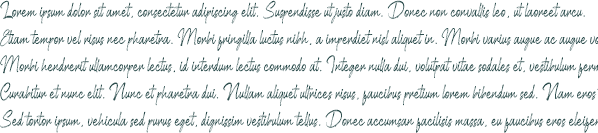 Lorem ipsum dolor sit amet, consectetur adipiscing elit. Suspendisse ut justo diam. Donec non convallis leo, ut laoreet arcu.
Etiam tempor vel risus nec pharetra. Morbi fringilla luctus nibh, a imperdiet nisl aliquet in. Morbi varius augue ac augue
Morbi hendrerit ullamcorper lectus, id interdum lectus commodo at. Integer nulla dui, volutpat vitae sodales et, vestibulum
Curabitur et nunc elit. Nunc et pharetra dui. Nullam aliquet ultrices risus, faucibus pretium lorem bibendum sed. Nam eros
Sed tortor ipsum, vehicula sed purus eget, dignissim vestibulum tellus. Donec accumsan facilisis massa, eu faucibus eros